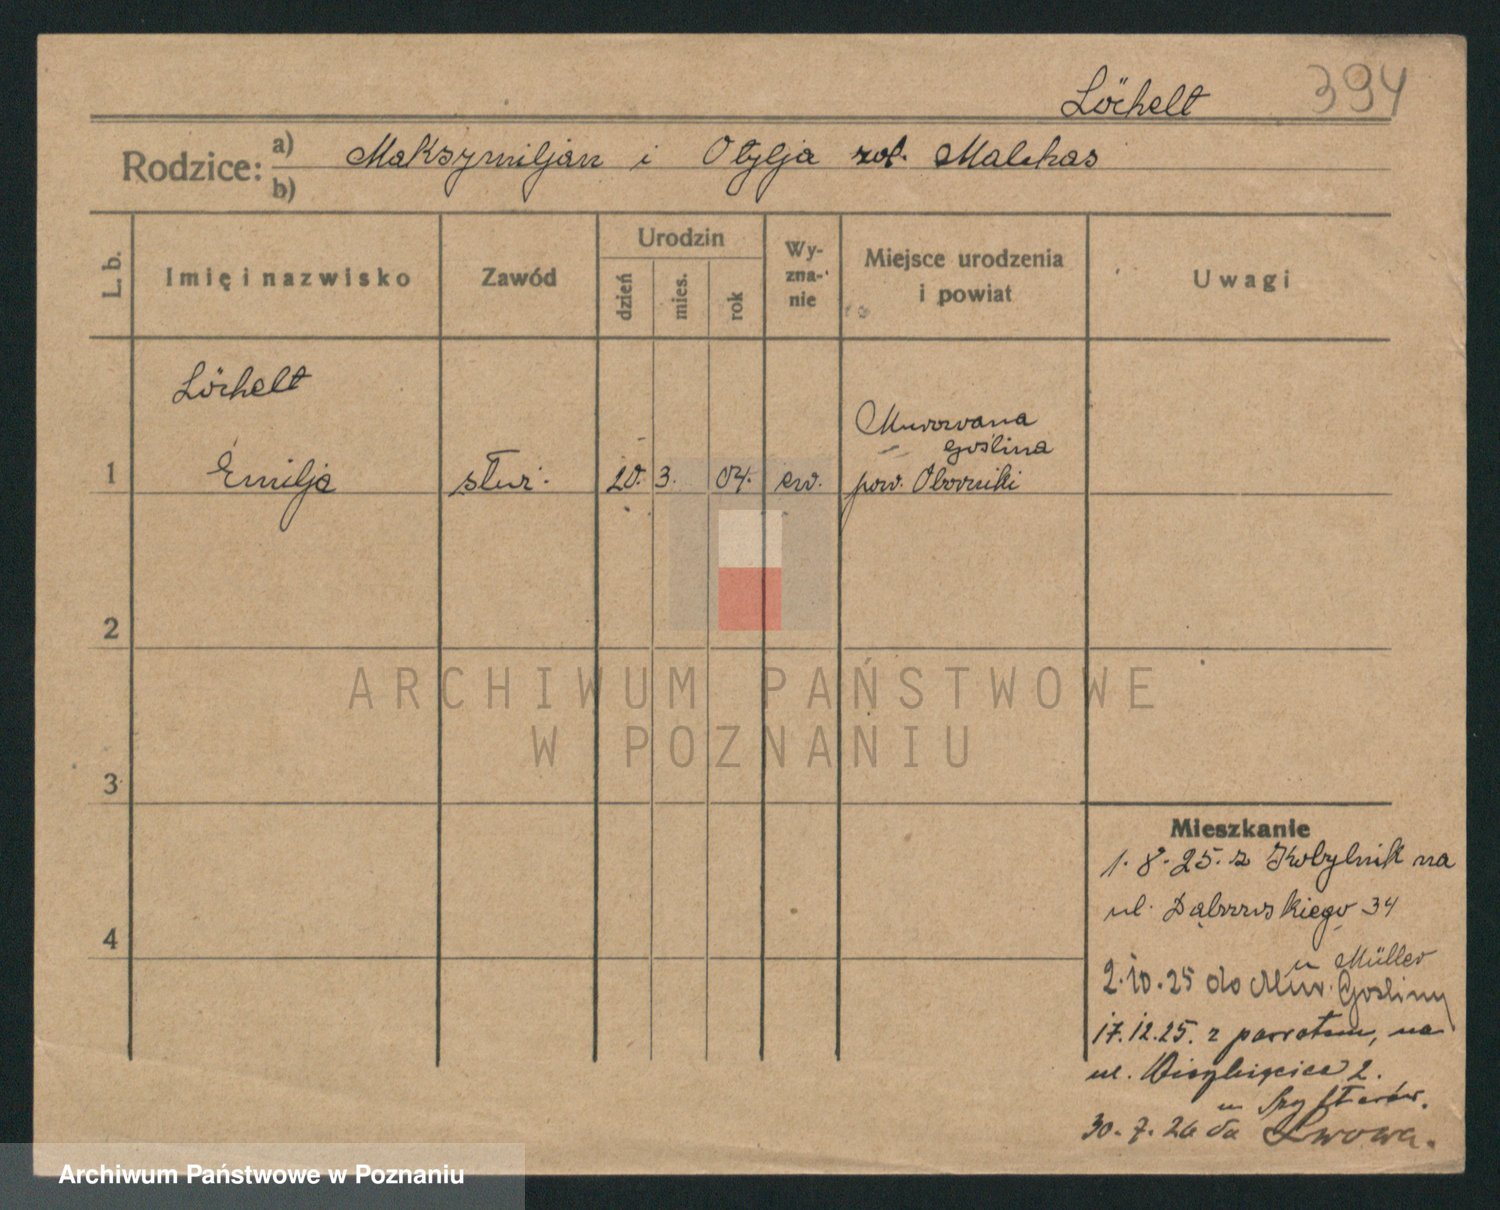 Löchelt 394
Rodzice: a) Maksymiljan i Otylja
b)
L. b.
Imię i nazwisko
Zawód
Urodzin
dzień
mies.
rok
Wy-
zna-
nie
Miejsce urodzenia
i powiat
Uwagi
Löchelt
Murowana
Goślina
1 Emilja służ. 20. 3. 04. ew. pow. Oborniki
2
3
4
ARCHIWUM PAŃSTWOWE
W POZNANIU
Mieszkanie
1. 8. 25. z Kobylnik na
ul. Dąbrowskiego 34
u Müller
2. 10. 25 do Mur. Gośliny
17. 12. 25. z powrotem, na
ul. 2.
u
30. 7. 26 do Lwowa.
Archiwum Państwowe w Poznaniu